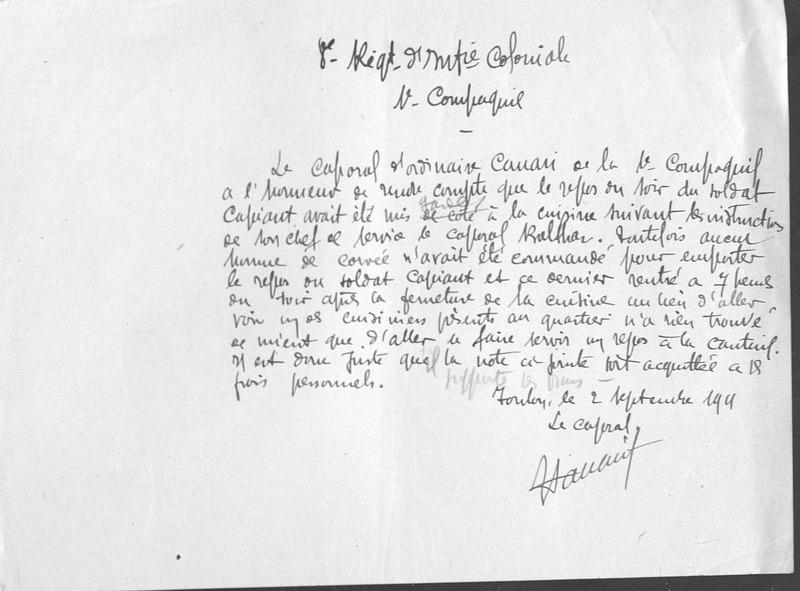 8e Régt d'Inftie Coloniale
Ve Compagnie
Le caporal d'ordinaire Canari de la Ve Compagnie
a l'honneur de rendre compte que le repos du soir du soldat
Capiant avait été mis de coté à la cuisine suivant les instructions
gardé
de son chef de service le caporal Balthaz. Toutefois aucun
homme de corvée n'avait été commandé pour emporter
le repos du soldat Capiant et ce dernier rentré a 7 heures
du soir après la fermeture de la cuisine au lieu d'aller
voir un des cuisiniers présents au quartier n'a rien trouvé
de mieux que d'aller se faire servir un repos à la cantine.
Il est donc juste qu'il la note ci jointe soit acquittée a ses
frais personnels. supporte les frais
Toulon, le 2 Septembre 1911
Le caporal